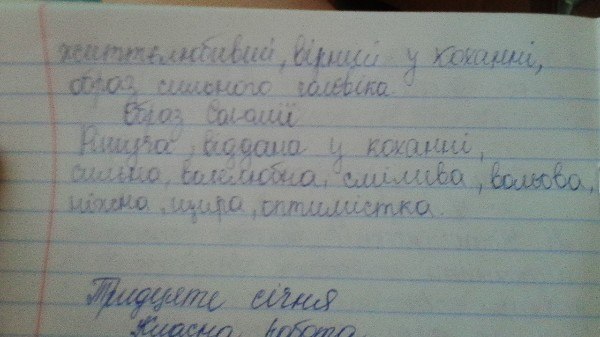 життєлюбивий, вірний у коханні,
образ сильного чоловіка.
Образ Соломії
Рішуча, віддана у коханні,
сильна, волелюбна, смілива, вольова,
ніжна, щира, оптимістка.
Тридцяте січня
Класна робота